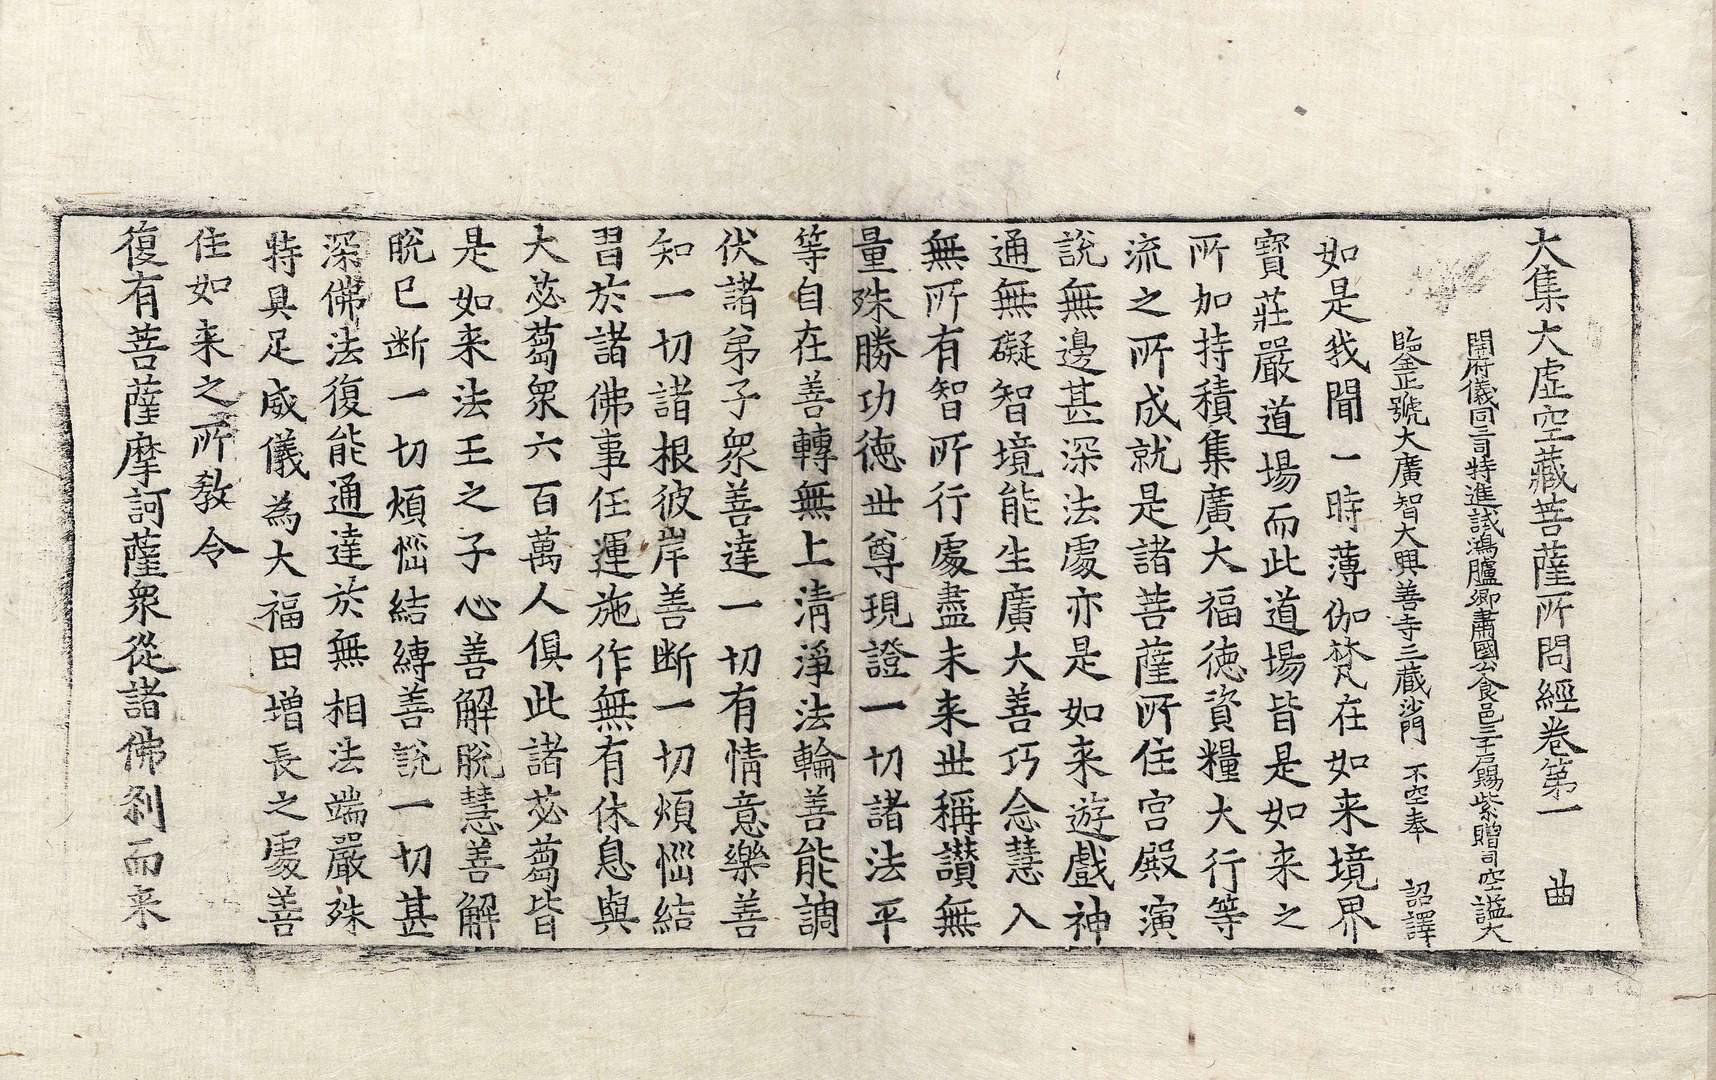 大集大虛空藏菩薩所問經卷第一 曲
開府儀同三司特進試鴻臚卿肅國公食邑三千戶賜紫贈司空謚大
臨金正號大廣智大興善寺三藏沙門 不空奉 詔譯
如是我聞一時薄伽梵在如来境界
寶莊嚴道場而此道場皆是如来之
所加持積集廣大福徳資糧大行等
流之所成就是諸菩薩所住宫殿演
說無邊甚深法處亦是如来遊戲神
通無礙智境能生廣大善巧念慧入
無所有智所行處盡未来丗稱讃無
量殊勝功徳丗尊現證一切諸法平
等自在善轉無上清淨法輪善能調
伏諸弟子衆善達一切有情意樂善
知一切諸根彼岸善断一切煩惱結
習於諸佛事任運施作無有休息與
大苾蒭衆六百萬人俱此諸苾蒭皆
是如来法王之子心善解脫慧善解
脫已断一切煩惱結縛善說一切甚
深佛法復能通達於無相法端嚴殊
特具足威儀為大福田增長之處善
住如来之所教令
復有菩薩摩訶薩衆從諸佛刹而来